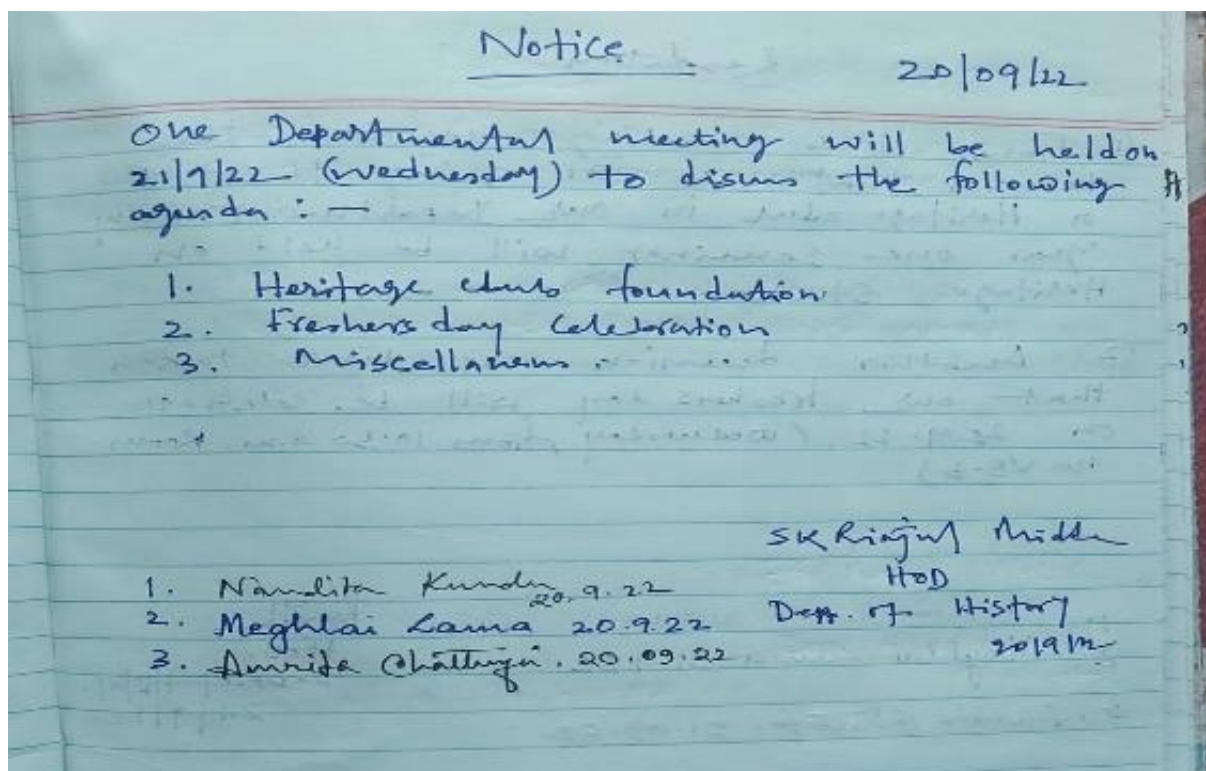 Notice
20/09/22
One Departmental meeting will be held on
21/9/22 (Wednesday) to discuss the following
agenda : —
1. Heritage club foundation
2. Freshers day Celebration
3. Miscellaneous.
SK Riajul Midde
HOD
1. Nandita Kundu 20.9.22
Dept. of History
2. Meghlai Lama 20.9.22
20/9/22
3. Amrita Chatterjee. 20.09.22